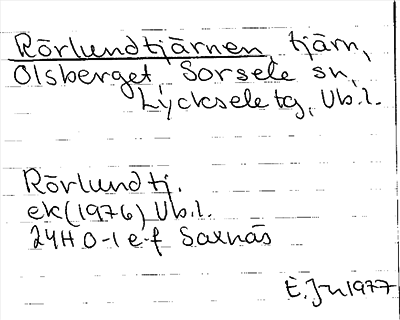 Rörlundtjärnen, tjärn,
Olsberget, Sorsele sn,
Lycksele tg, Vb.l.
Rörlundtj.
ek (1976) Vb.l.
24H 0-1 e-f Saxnäs
E. Jn 1977